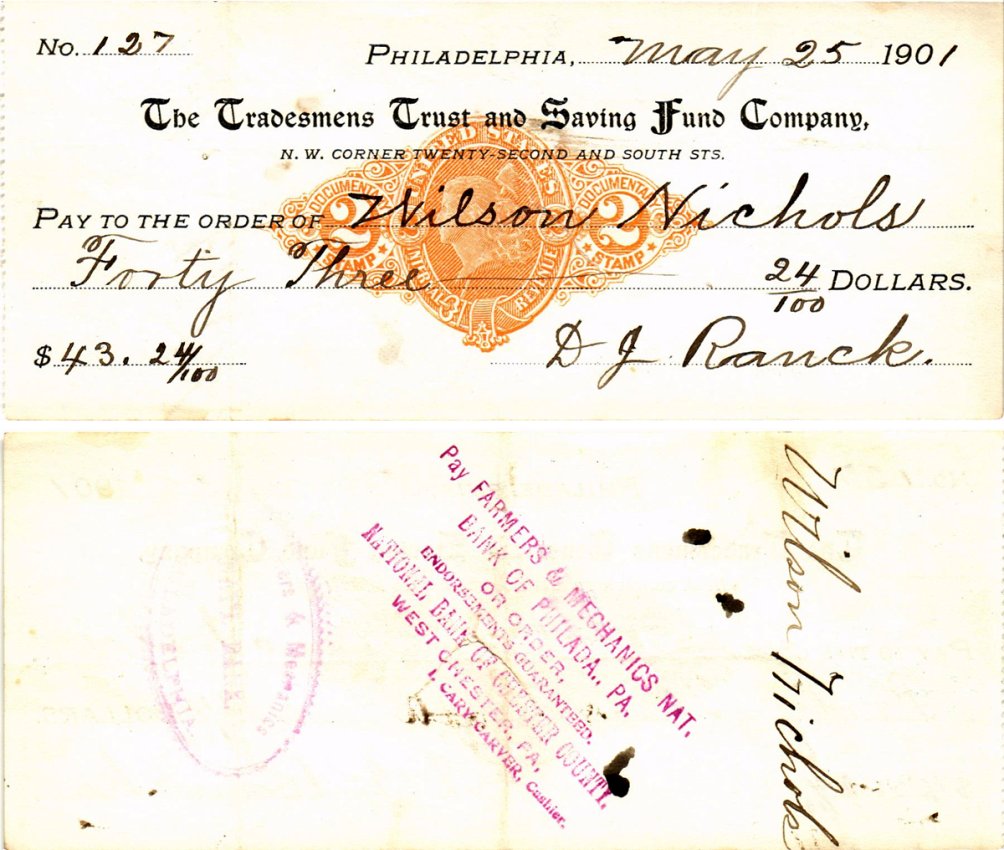 No. 127
PHILADELPHIA, May 25 1901
The Tradesmens Trust and Saving Fund Company,
N. W. CORNER TWENTY-SECOND AND SOUTH STS.
UNITED STATES
DOCUMENTA DOCUMENTA
PAY TO THE ORDER OF Wilson Nichols
2 2
STAMP STAMP
INTERNAL REVENUE
Forty Three 24/100 DOLLARS.
$ 43. 24/100
D J Ranck.
Pay FARMERS & MECHANICS NAT.
BANK OF PHILADA., PA.
OR ORDER,
ENDORSEMENTS GUARANTEED.
NATIONAL BANK OF CHESTER COUNTY,
WEST CHESTER, PA.
I. CARY CARVER, Cashier.
& Mechanics
BANK
Wilson Nichols